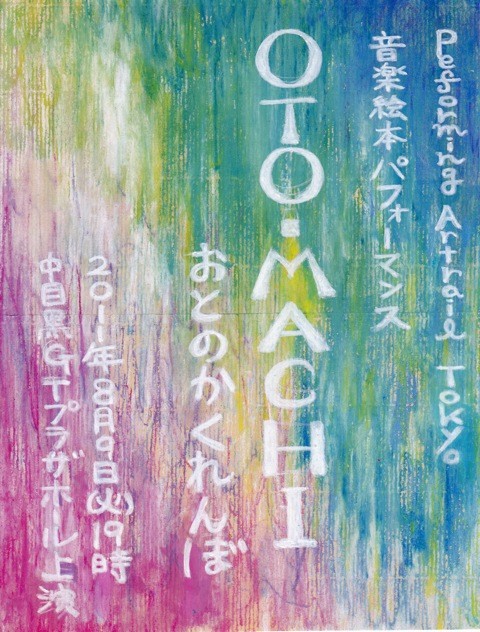 Pefonming Artrail Tokyo
音楽絵本パフォーマンス
OTO・MACHI
おとのかくれんぼ
2011年8月9日(火)19時
中目黒GTプラザホール上演